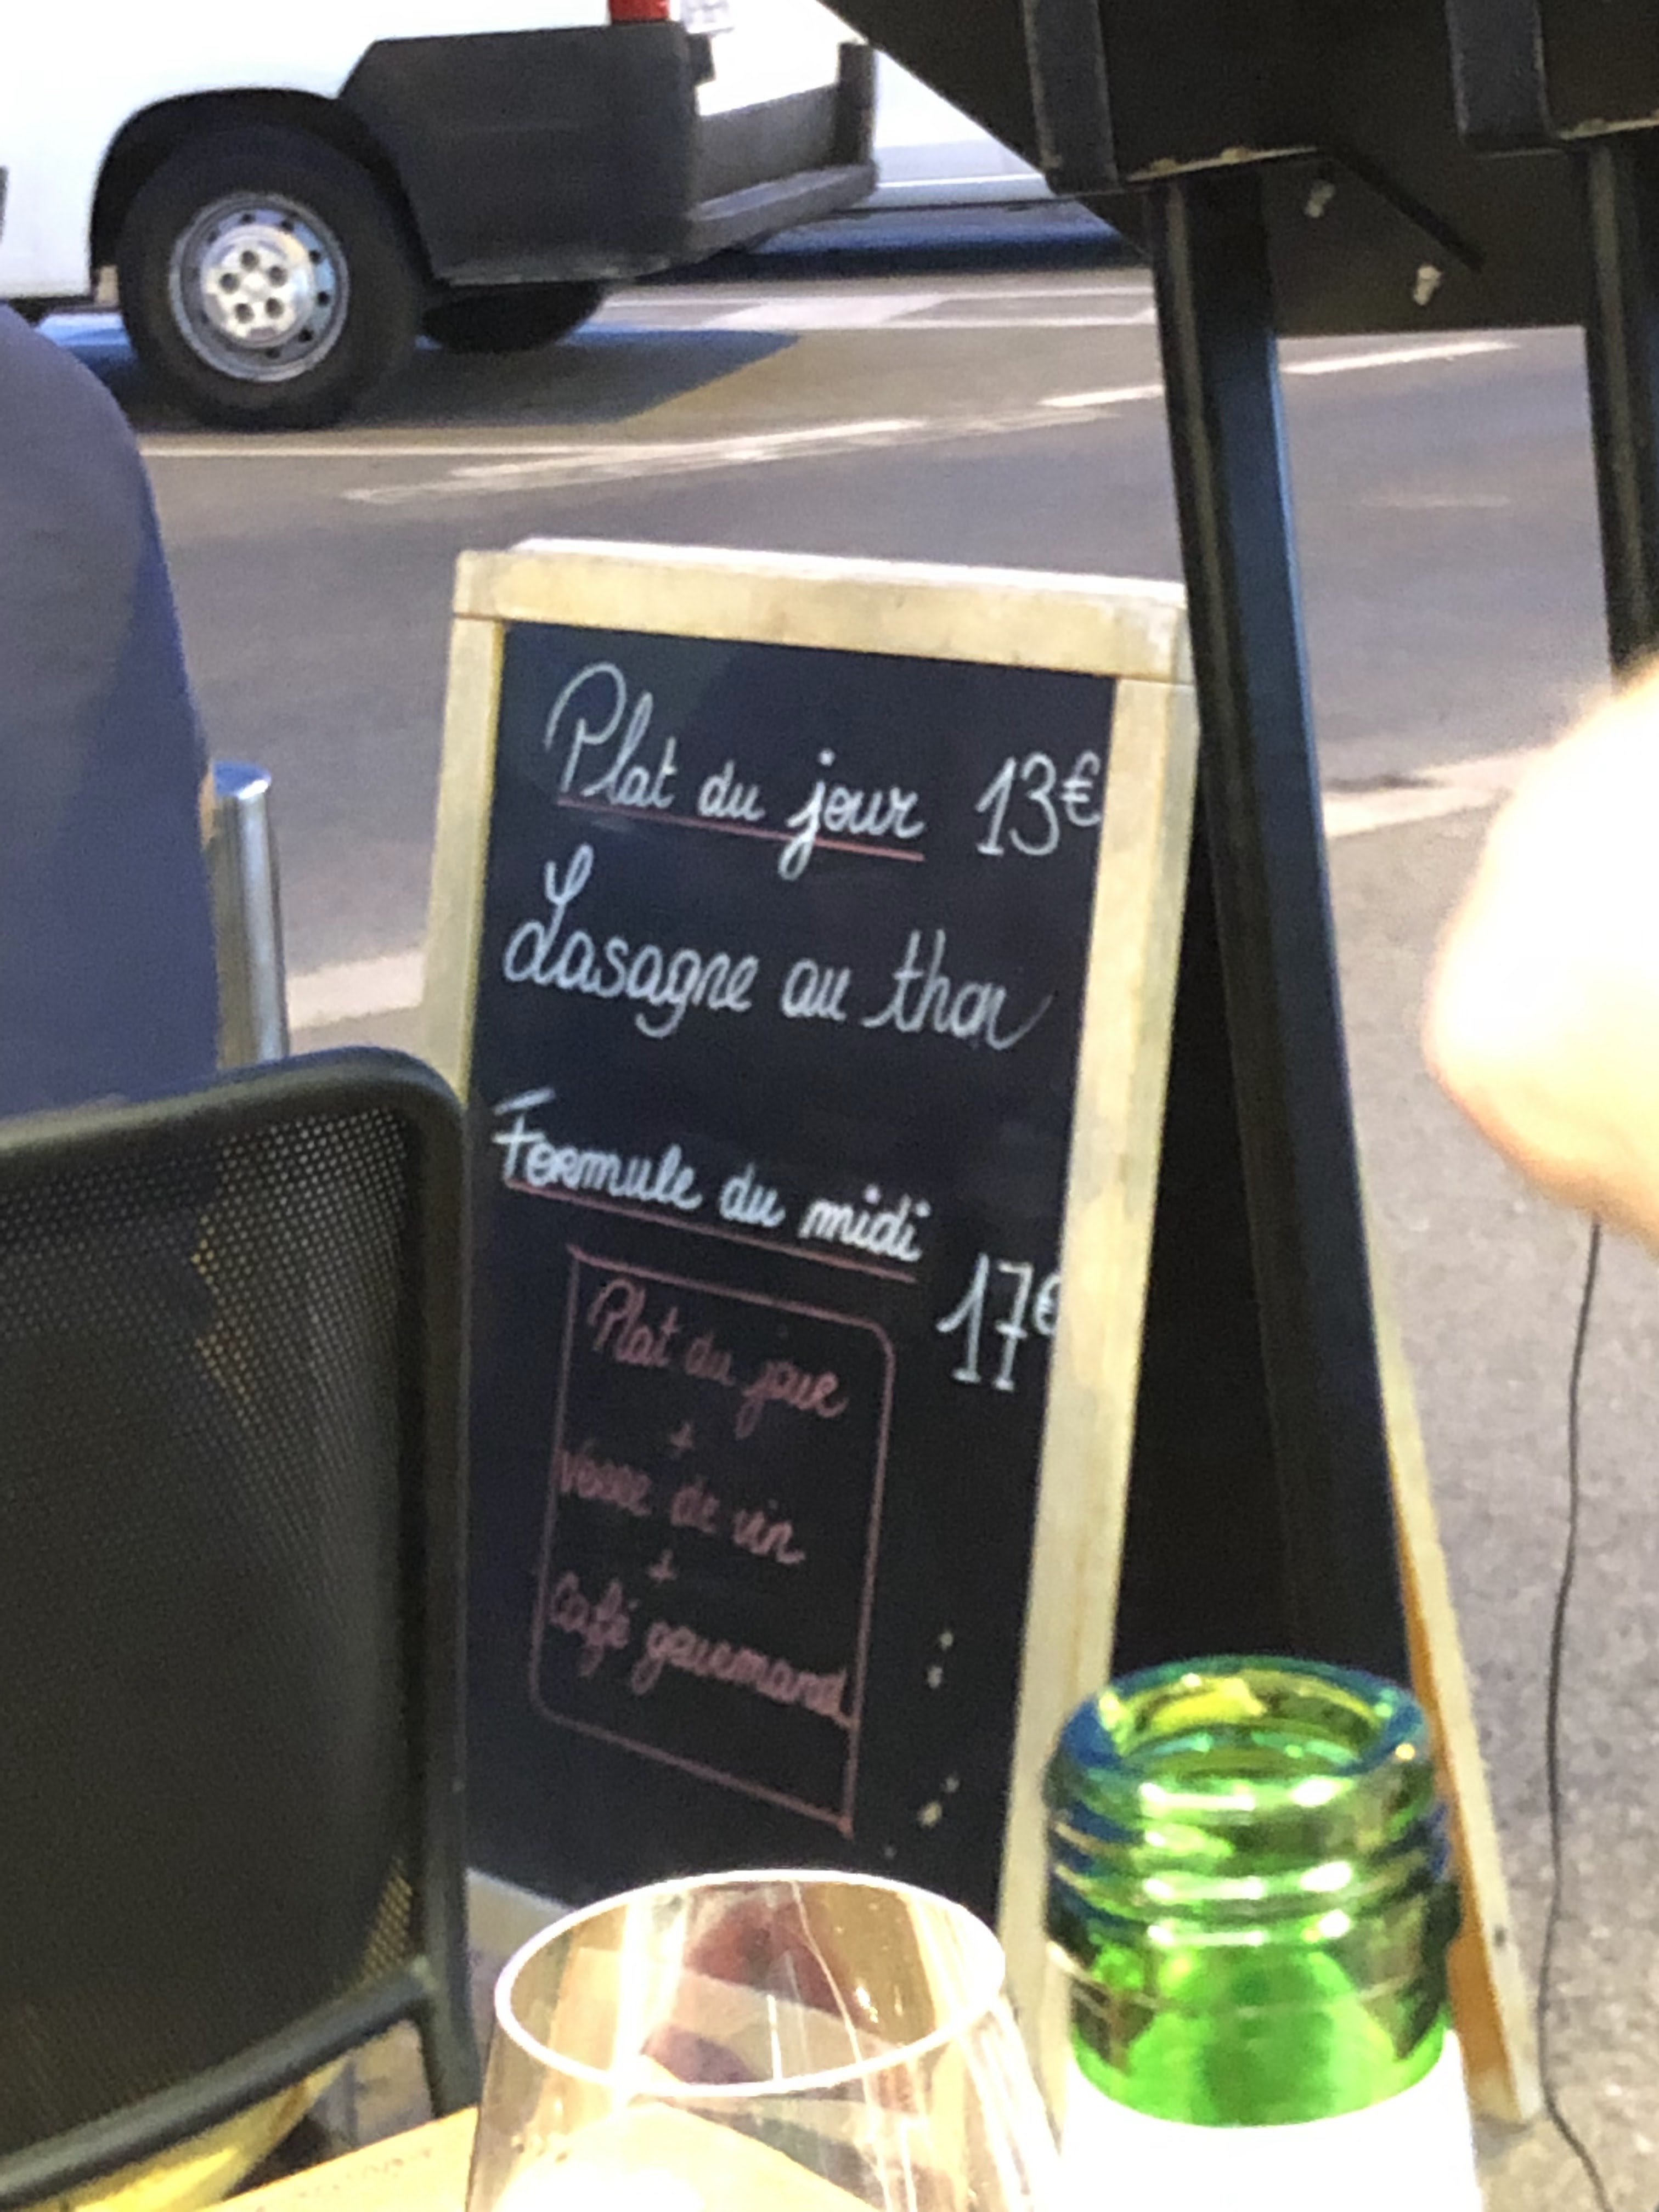 Plat du jour 13€
Lasagne au thon
Formule du midi
17€
Plat du jour
+
Verre de vin
+
Café gourmand